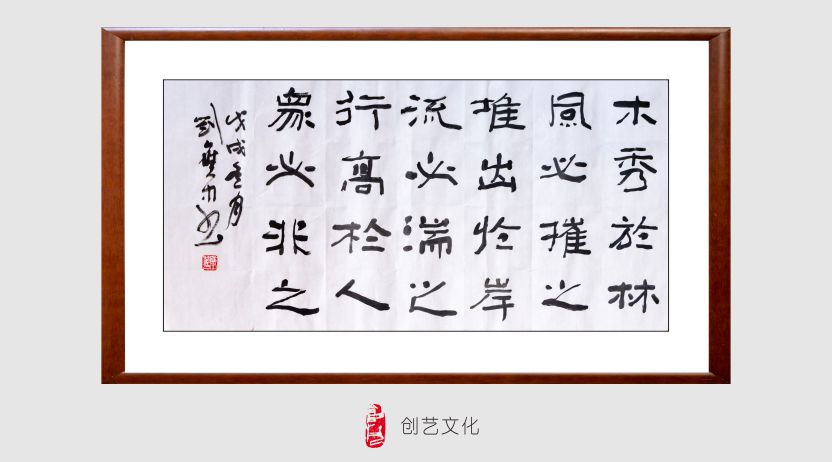 木秀於林
風必摧之
堆出於岸
流必湍之
行高於人
衆必非之
戊戌
创艺文化